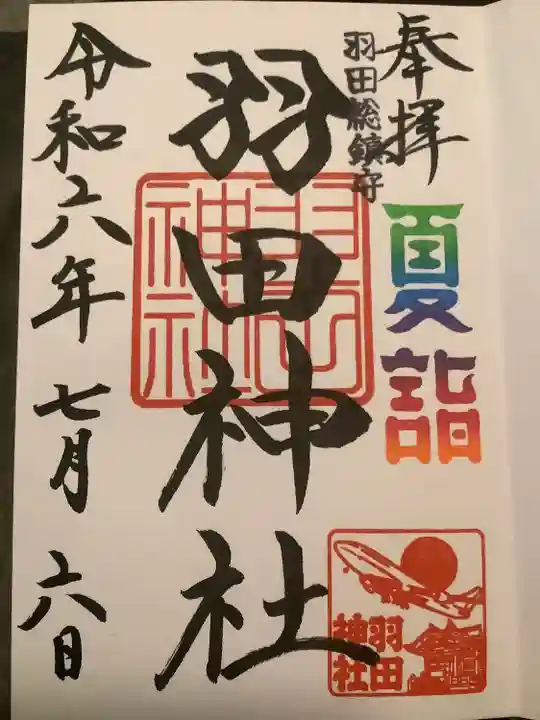 奉拝
羽田総鎮守
夏詣
羽田神社
羽田神社
羽田
神社
令和六年七月六日